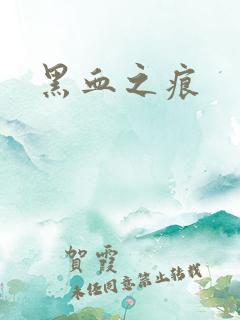 黑血之痕
賀霞
未经同意禁止转载